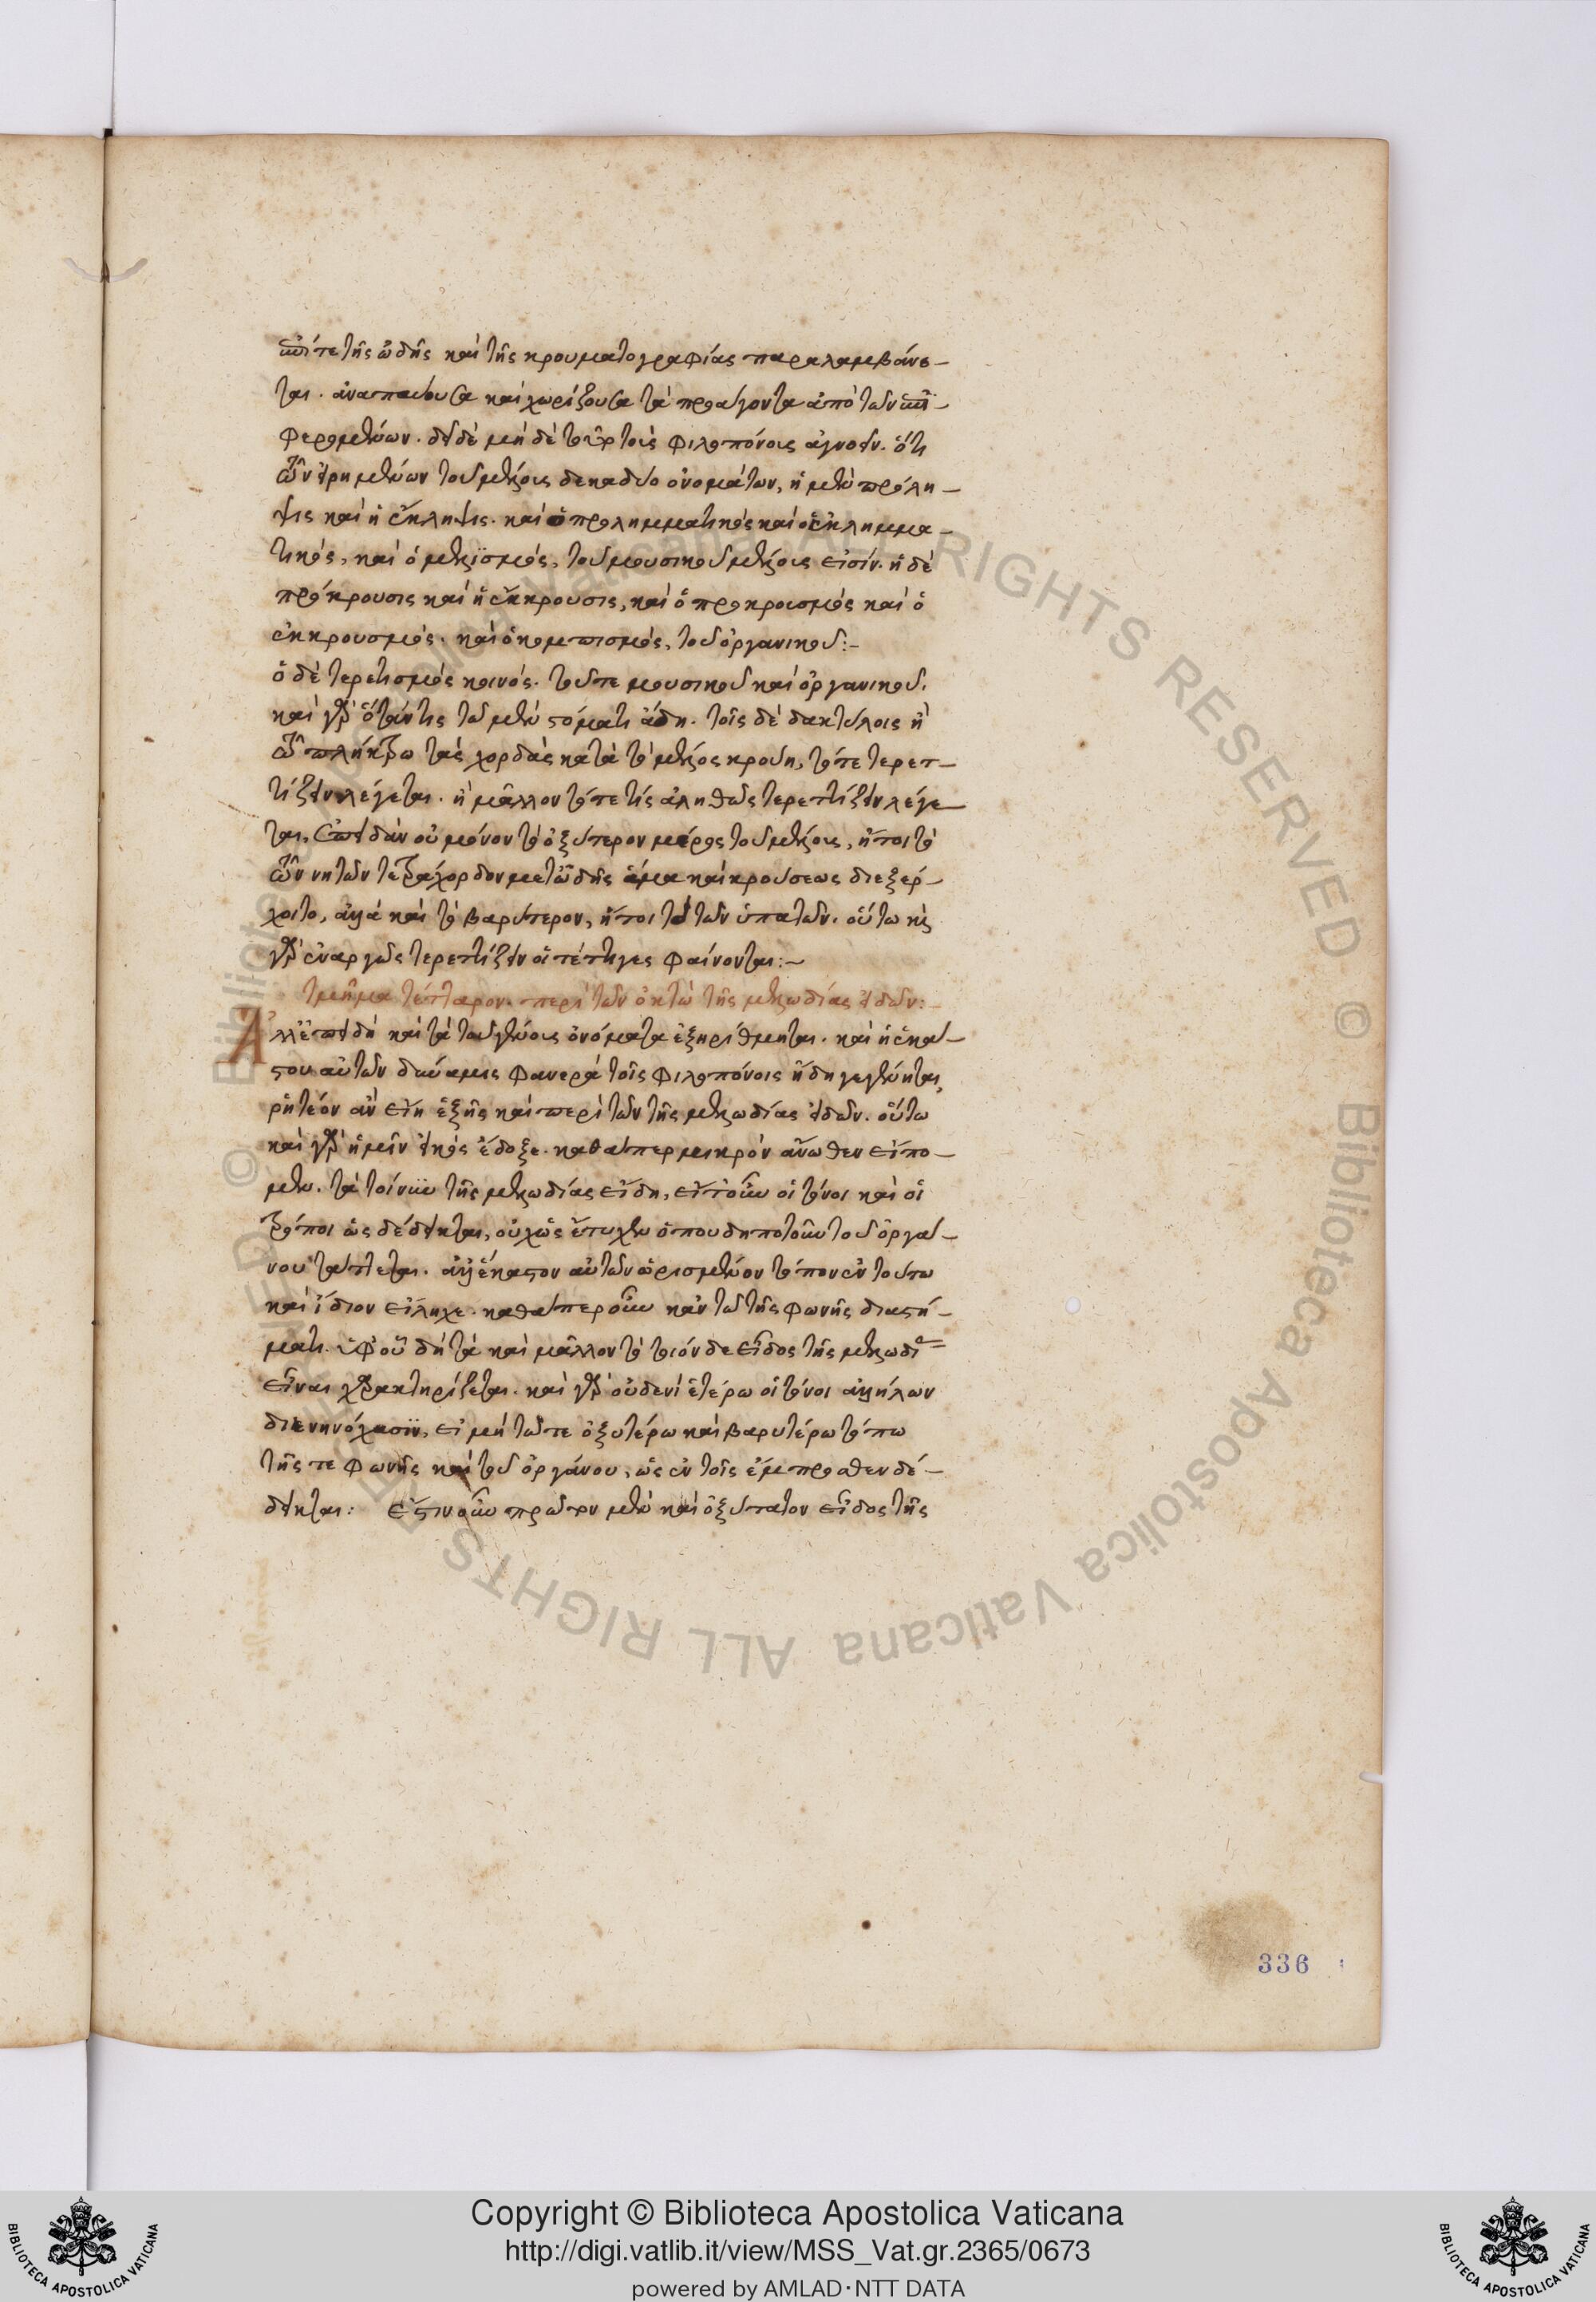 ἐπί τε τῆς ὠδῆς καὶ τῆς κρουματογραφίας παραλαμβάνε-
ται. ἀναπαύουσα καὶ χωρίζουσα τὰ προάγοντα ἀπὸ τῶν ἐπι-
φερομένων. δεῖ δὲ μὴ δὲ τοῦτο τοὺς φιλοπόνους ἀγνοεῖν. ὅτι
τῶν εἰρημένων τοῦ μέλους δεκαδύο ὀνομάτων, ἡ μὲν πρόλη-
ψις καὶ ἡ ἔκληψις. καὶ ὁ προλημματικὸς καὶ ὁ ἐκλημμα-
τικὸς, καὶ ὁ μελισμὸς, τοῦ μουσικοῦ μέλους εἰσίν. ἡ δὲ
πρόκρουσις καὶ ἡ ἔκκρουσις, καὶ ὁ προκρουσμὸς καὶ ὁ
ἐκκρουσμὸς. καὶ ὁ κομπισμὸς, τοῦ ὀργανικοῦ:-
ὁ δὲ τερετισμὸς κοινός. τοῦ τε μουσικοῦ καὶ ὀργανικοῦ.
καὶ γὰρ ὅταν τις τῷ μὲν στόματι ἄδη. τοῖς δὲ δακτύλοις ἢ
τῷ πλήκτρω τὰς χορδὰς κατὰ τὸ μέλος κρούη, τότε τερετ-
τίζειν λέγεται. ἢ μᾶλλον τότε τίς ἀληθῶς τερεττίζειν λέγε
ται, ἐπειδὰν οὐ μόνον τὸ ὀξύτερον μέρος τοῦ μέλους, ἤτοι τὸ
τῶν νητῶν τετράχορδον μετ' ὠδῆς ἅμα καὶ κρούσεως διεξέρ-
χοιτο, ἀλλὰ καὶ τὸ βαρύτερον, ἤτοι τὸ τῶν ὑπατῶν. οὕτω καὶ
γὰρ ἐναργῶς τερεττίζειν οἱ τέττιγες φαίνονται:-
τμῆμα τέταρτον. περὶ τῶν ὀκτὼ τῆς μελωδίας εἰδῶν:-
Ἀλλ' ἐπειδὴ καὶ τὰ τοῦ γένους ὀνόματα ἐξηρίθμηται. καὶ ἡ ἑκά-
στου αὐτῶν δύναμις φανερὰ τοῖς φιλοπόνοις ἤδη γεγένηται,
ῥητέον ἂν εἴη ἑξῆς καὶ περὶ τῶν τῆς μελωδίας εἰδῶν. οὕτω
καὶ γὰρ ἡμῖν εἰκὸς ἔδοξε. καθάπερ μικρὸν ἄνωθεν εἴπο-
μεν. τὰ τοίνυν τῆς μελωδίας εἴδη, εἴτουν οἱ τόνοι καὶ οἱ
τρόποι ὡς δέδεικται, οὐχ ὡς ἔτυχεν ὁπουδηποτοῦν τοῦ ὀργά-
νου τάττεται. ἀλλ' ἕκαστον αὐτῶν ὡρισμένον τόπον ἐν τούτω
καὶ ἴδιον εἴληχε. καθάπερ οὖν κἀν τῷ τῆς φωνῆς διαστή-
ματι. ὑφ' οὗ δῆτα καὶ μᾶλλον τὸ τοιόνδε εἶδος τῆς μελωδίας
εἶναι χαρακτηρίζεται. καὶ γὰρ οὐδενὶ ἑτέρω οἱ τόνοι ἀλλήλων
διενηνόχασιν, εἰ μὴ τῷ τε ὀξυτέρω καὶ βαρυτέρω τόπω
τῆς τε φωνῆς καὶ τοῦ ὀργάνου, ὡς ἐν τοῖς ἔμπροσθεν δέ-
δεικται: ἔστιν οὖν πρῶτον μὲν καὶ ὀξύτατον εἶδος τῆς
336
Copyright © Biblioteca Apostolica Vaticana
http://digi.vatlib.it/view/MSS_Vat.gr.2365/0673
powered by AMLAD·NTT DATA